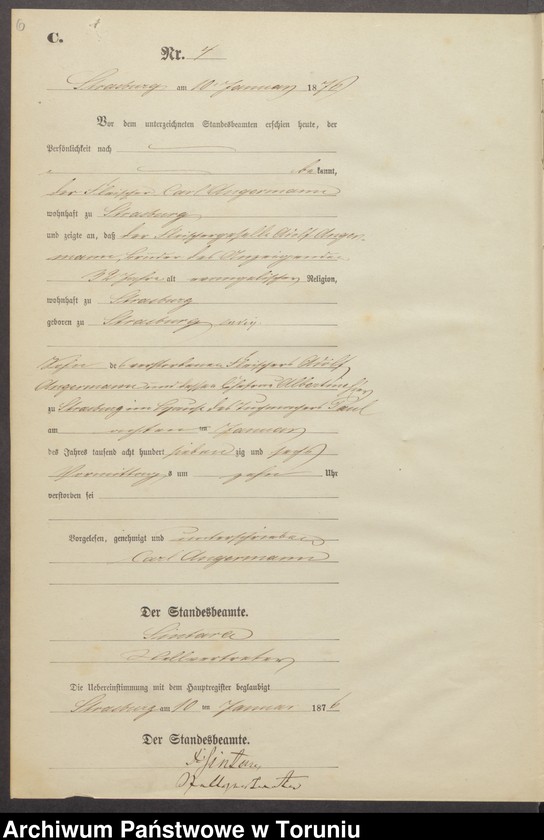 6
1
C.
Nr. 4
Strasburg am 10 Januar 1876
Vor dem unterzeichneten Standesbeamten erschien heute, der
Persönlichkeit nach
bekannt,
der Fleischer Carl Angermann
wohnhaft zu Strasburg
und zeigte an, daß der Fleischergeselle Adolf Anger-
mann, Bruder des Anzeigenden
32 Jahre alt evangelischer Religion,
wohnhaft zu Strasburg
geboren zu Strasburg ledig
Sohn des verstorbenen Fleischers Adolf
Angermann und dessen Ehefrau Albertine hier
zu Strasburg im Hause des Tuchmachers Paul
am achten Januar
des Jahres tausend acht hundert siebenzig und sechs
Vormittags um zehn Uhr
verstorben sei
Vorgelesen, genehmigt und unterschrieben
Carl Angermann
Der Standesbeamte.
Stellvertreter
Die Uebereinstimmung mit dem Hauptregister beglaubigt
Strasburg am 10 ten Januar 1876
Der Standesbeamte.
Stellvertreter
Archiwum Państwowe w Toruniu